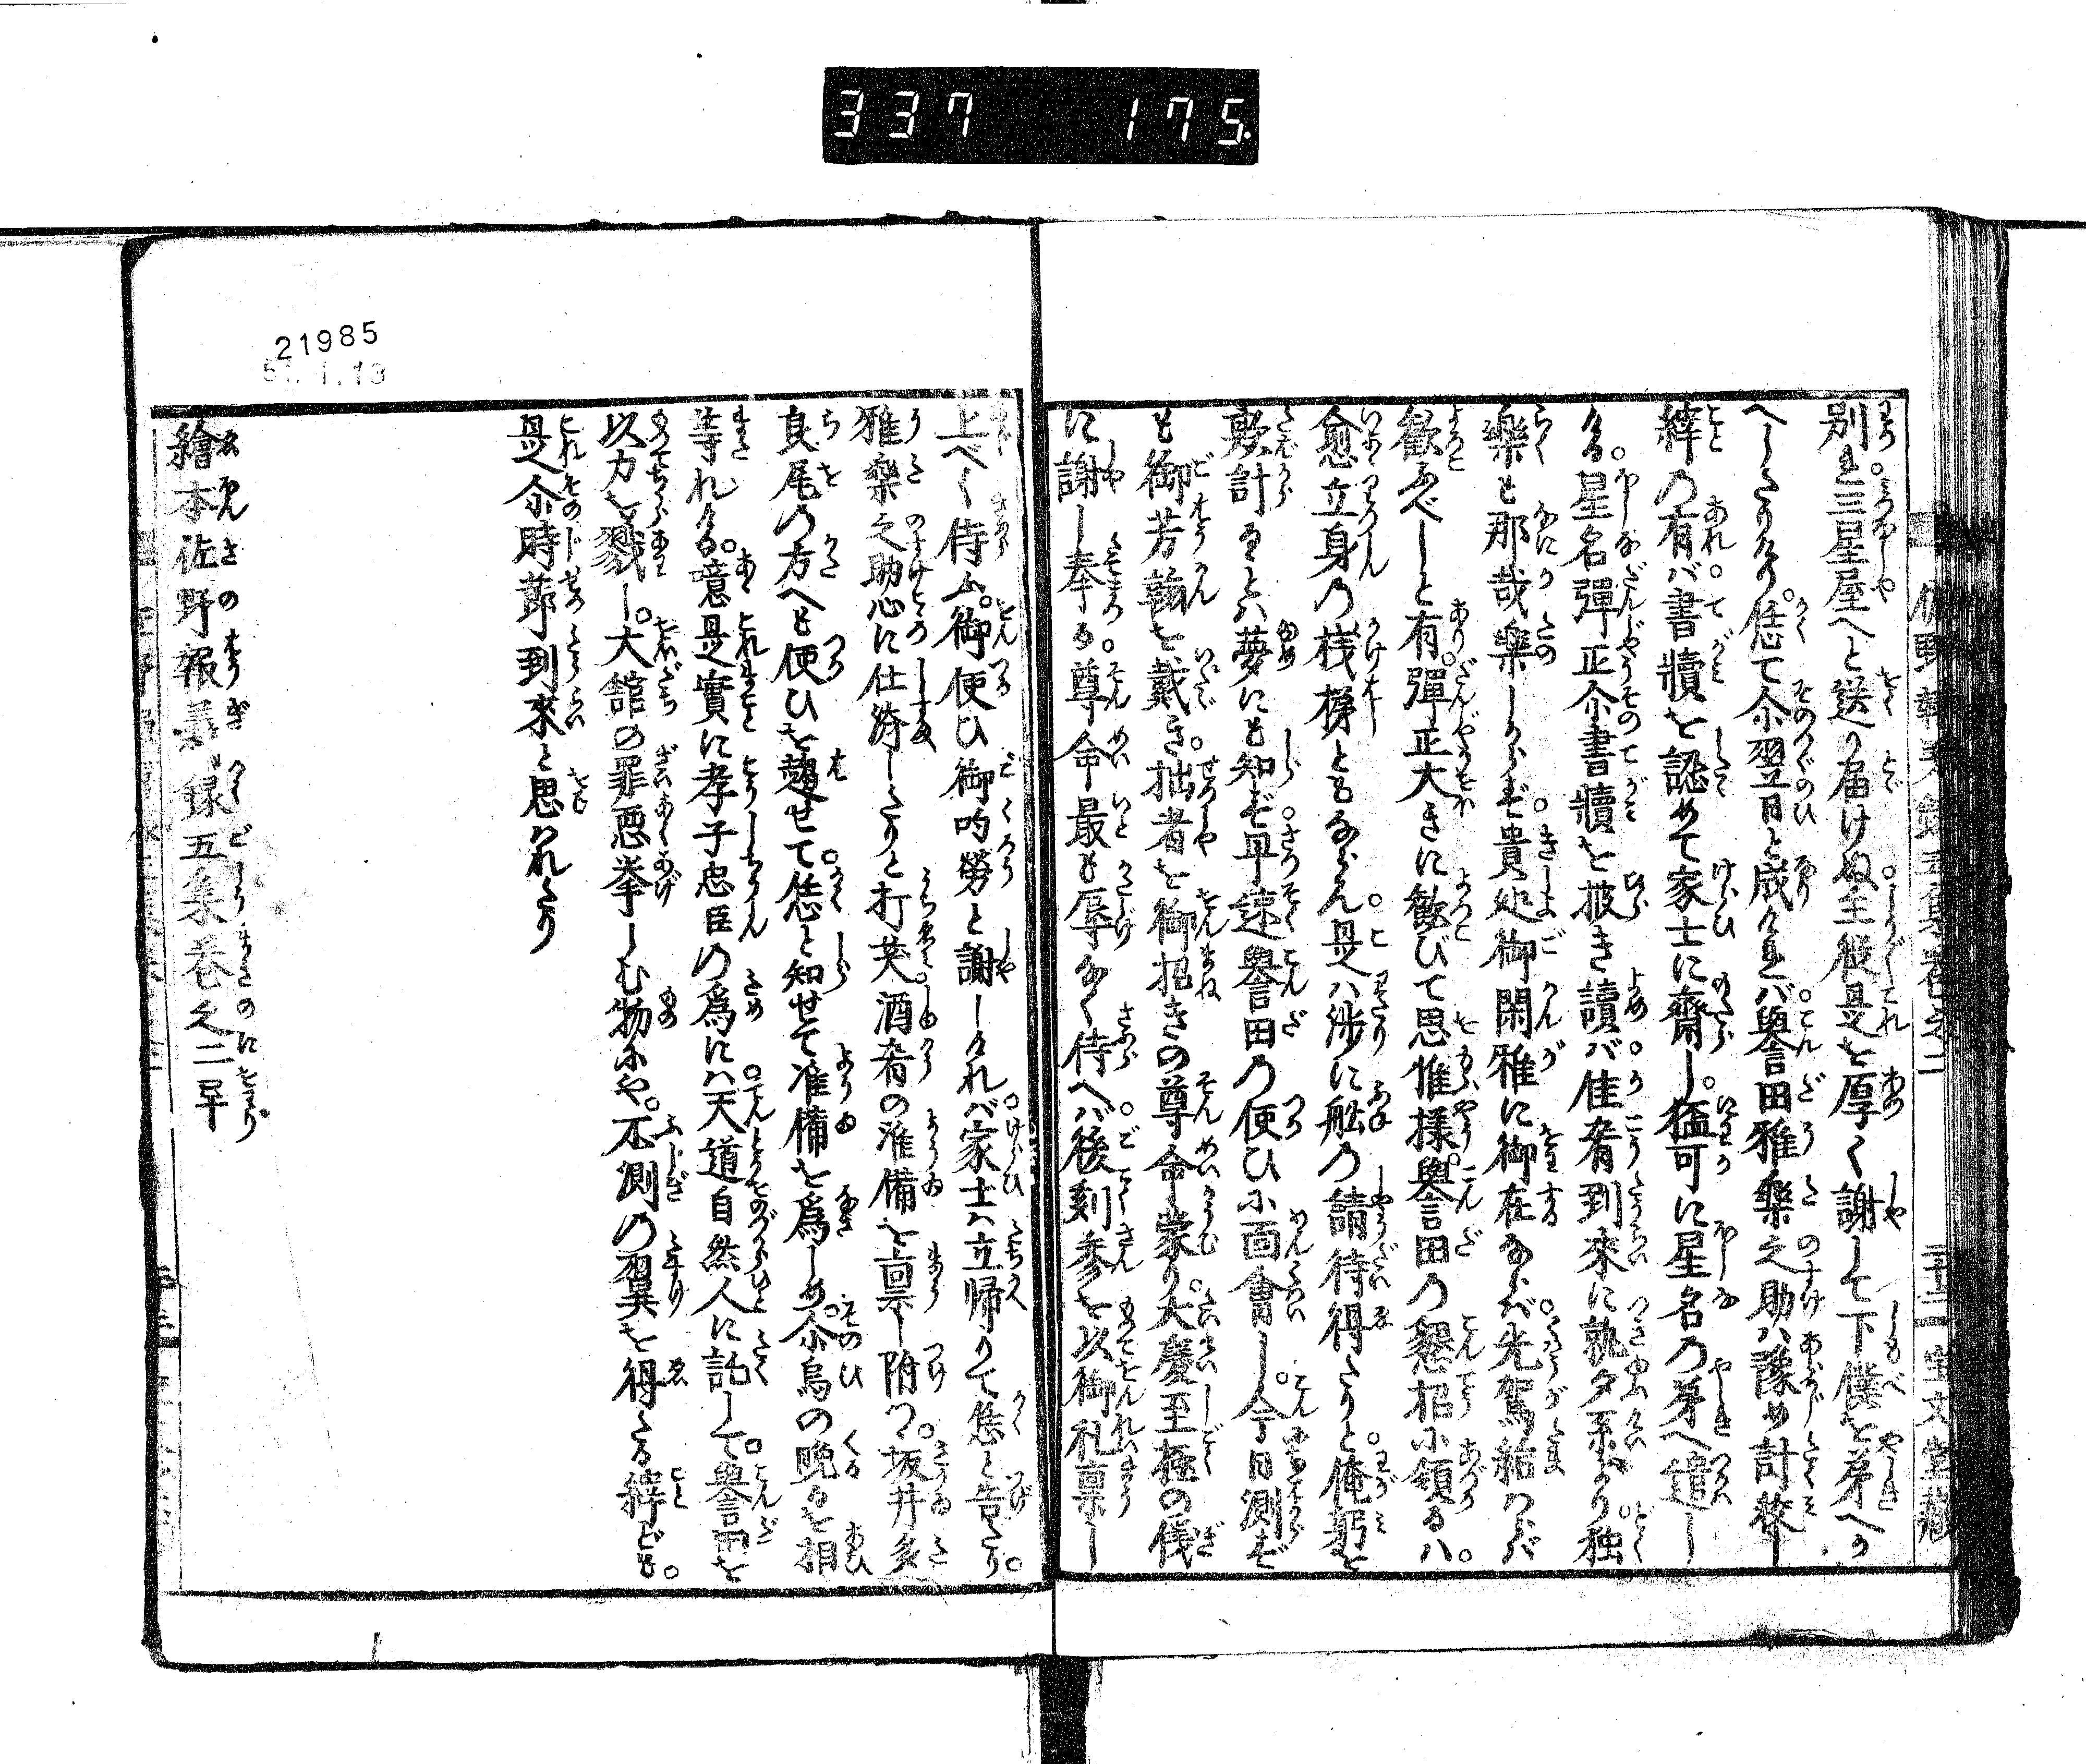 337 175.
別れ三星屋へと送り届けぬ主従是を厚く謝して下僕を第へか
へしたりける恁て尒翌日と成ければ誉田雅樂之助ハ豫め計整し
縡の有バ書牘を認めて家士に齎し猛可に星名の第へ遣し
ける星名彈正尒書牘を披き讀バ佳肴到來に就夕系より独
樂と那哉樂しからず貴処御閑雅に御在なバ光駕給わバ
歓ふべしと有彈正大きに歓びて思惟様誉田の懇招に預るハ
愈立身の桟梯ともならん是ハ渉に舩の請待得たりと俺躬を
欺計るとハ夢にも知ず早速誉田の使ひに面會し今日測ず
も御芳翰を戴き拙者を御招きの尊命蒙り大慶至極の儀
に謝し奉る尊命最も辱なく侍へバ後刻参を以御礼禀し
上べく侍ふ御使ひ御吟勞と謝しけれバ家士ハ立帰りて恁と告たり
雅樂之助心に仕済したりと打笑酒肴の准備を禀し附つ坂井多
良尾の方へも使ひを趨せて恁と知せて准備を為しめ尒烏の晩るを相
等れける噫是實に孝子忠臣の為にハ天道自然人に託して誉田を
以力を戮し大舘の罪悪挙しむ物にや不測の翼を得たる縡ども
是尒時莭到來と思われたり
繪本佐野報義録五集巻之二早
21985